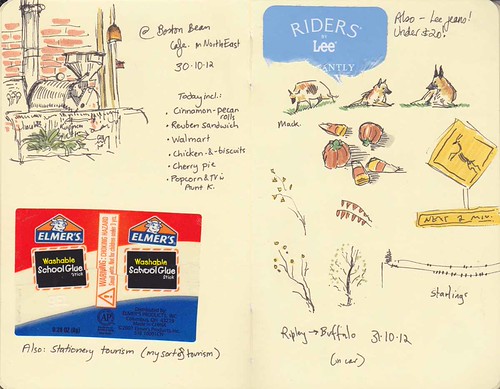 @ Boston Bean
Cafe. in NorthEast
30.10.12
Today incl:
• Cinnamon-pecan
rolls
• Reuben sandwich
• Walmart
• Chicken-&-biscuits
• Cherry pie
• Popcorn & TV
Aunt K.
ELMER'S
Washable
School Glue
Stick
WARNING: CHOKING HAZARD
ELMER'S
Washable
School Glue
Stick
AP
Distributed by
ELMER'S PRODUCTS, INC.
Columbus, OH
Also: Stationery tourism (my sort of tourism)
RIDERS
BY
Lee
ANTLY
Also - Lee jeans!
Under $20!
NEXT 2 MI.
Starlings
Ripley → Buffalo 31.10.12
(in car)